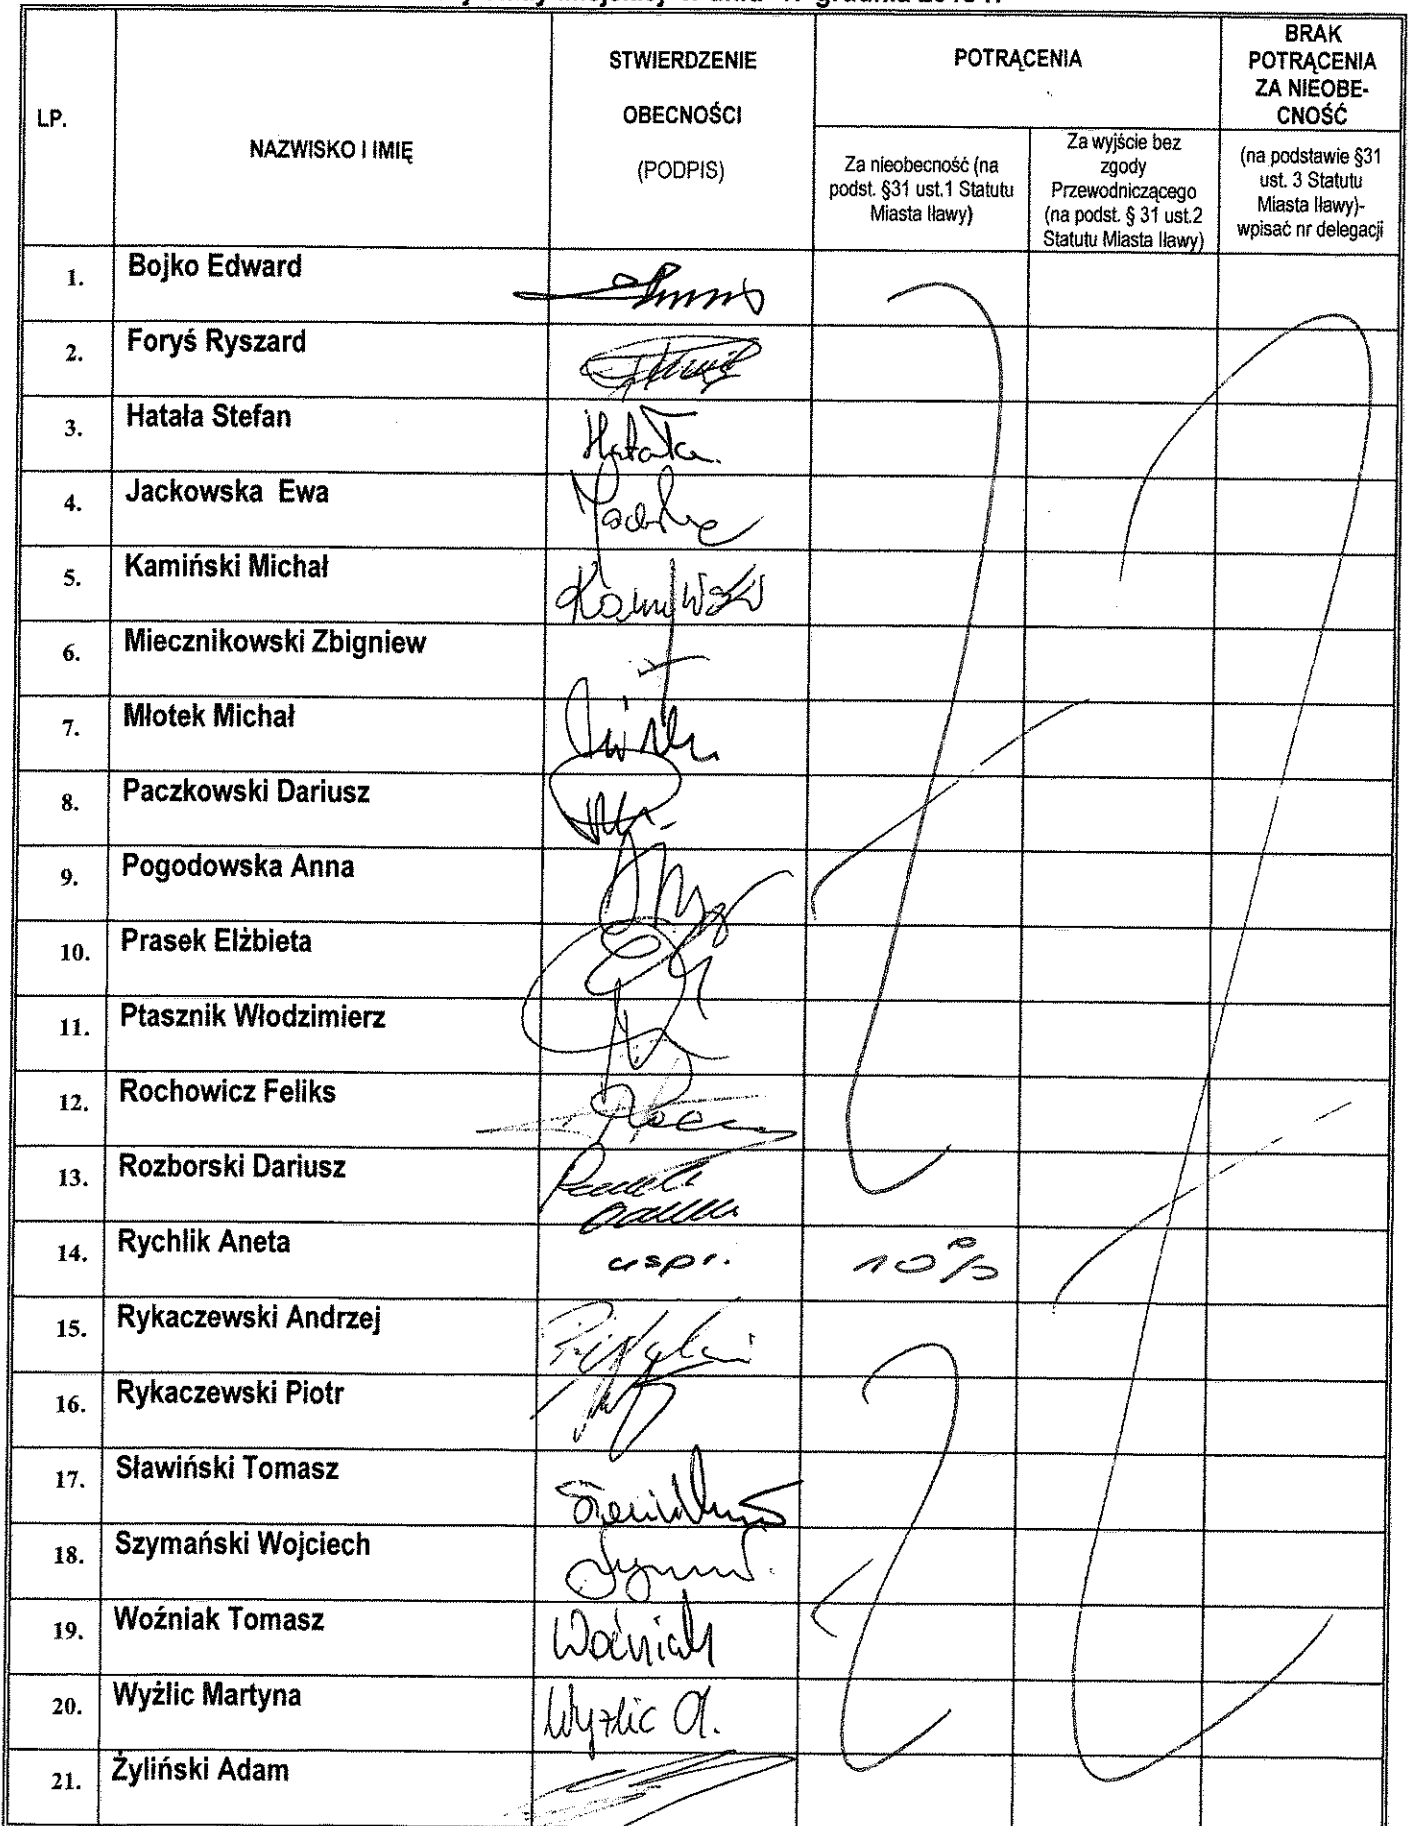 grudnia 2018 r.
LP.
NAZWISKO I IMIĘ
STWIERDZENIE
OBECNOŚCI
(PODPIS)
POTRĄCENIA
Za nieobecność (na
podst. §31 ust.1 Statutu
Miasta Iławy)
Za wyjście bez
zgody
Przewodniczącego
(na podst. § 31 ust.2
Statutu Miasta Iławy)
BRAK
POTRĄCENIA
ZA NIEOBE-
CNOŚĆ
(na podstawie §31
ust. 3 Statutu
Miasta Iławy)-
wpisać nr delegacji
1. Bojko Edward
2. Foryś Ryszard
3. Hatała Stefan Hatała
4. Jackowska Ewa
5. Kamiński Michał Kamiński
6. Miecznikowski Zbigniew
7. Młotek Michał
8. Paczkowski Dariusz
9. Pogodowska Anna
10. Prasek Elżbieta
11. Ptasznik Włodzimierz
12. Rochowicz Feliks
13. Rozborski Dariusz
14. Rychlik Aneta uspr. 10%
15. Rykaczewski Andrzej
16. Rykaczewski Piotr
17. Sławiński Tomasz
18. Szymański Wojciech
19. Woźniak Tomasz Woźniak
20. Wyżlic Martyna Wyżlic M.
21. Żyliński Adam